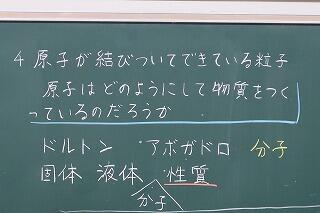 4 原子が結びついてできている粒子
原子はどのようにして物質をつく
っているのだろうか
ドルトン ・アボガドロ 分子
固体 液体 ・性質
分子